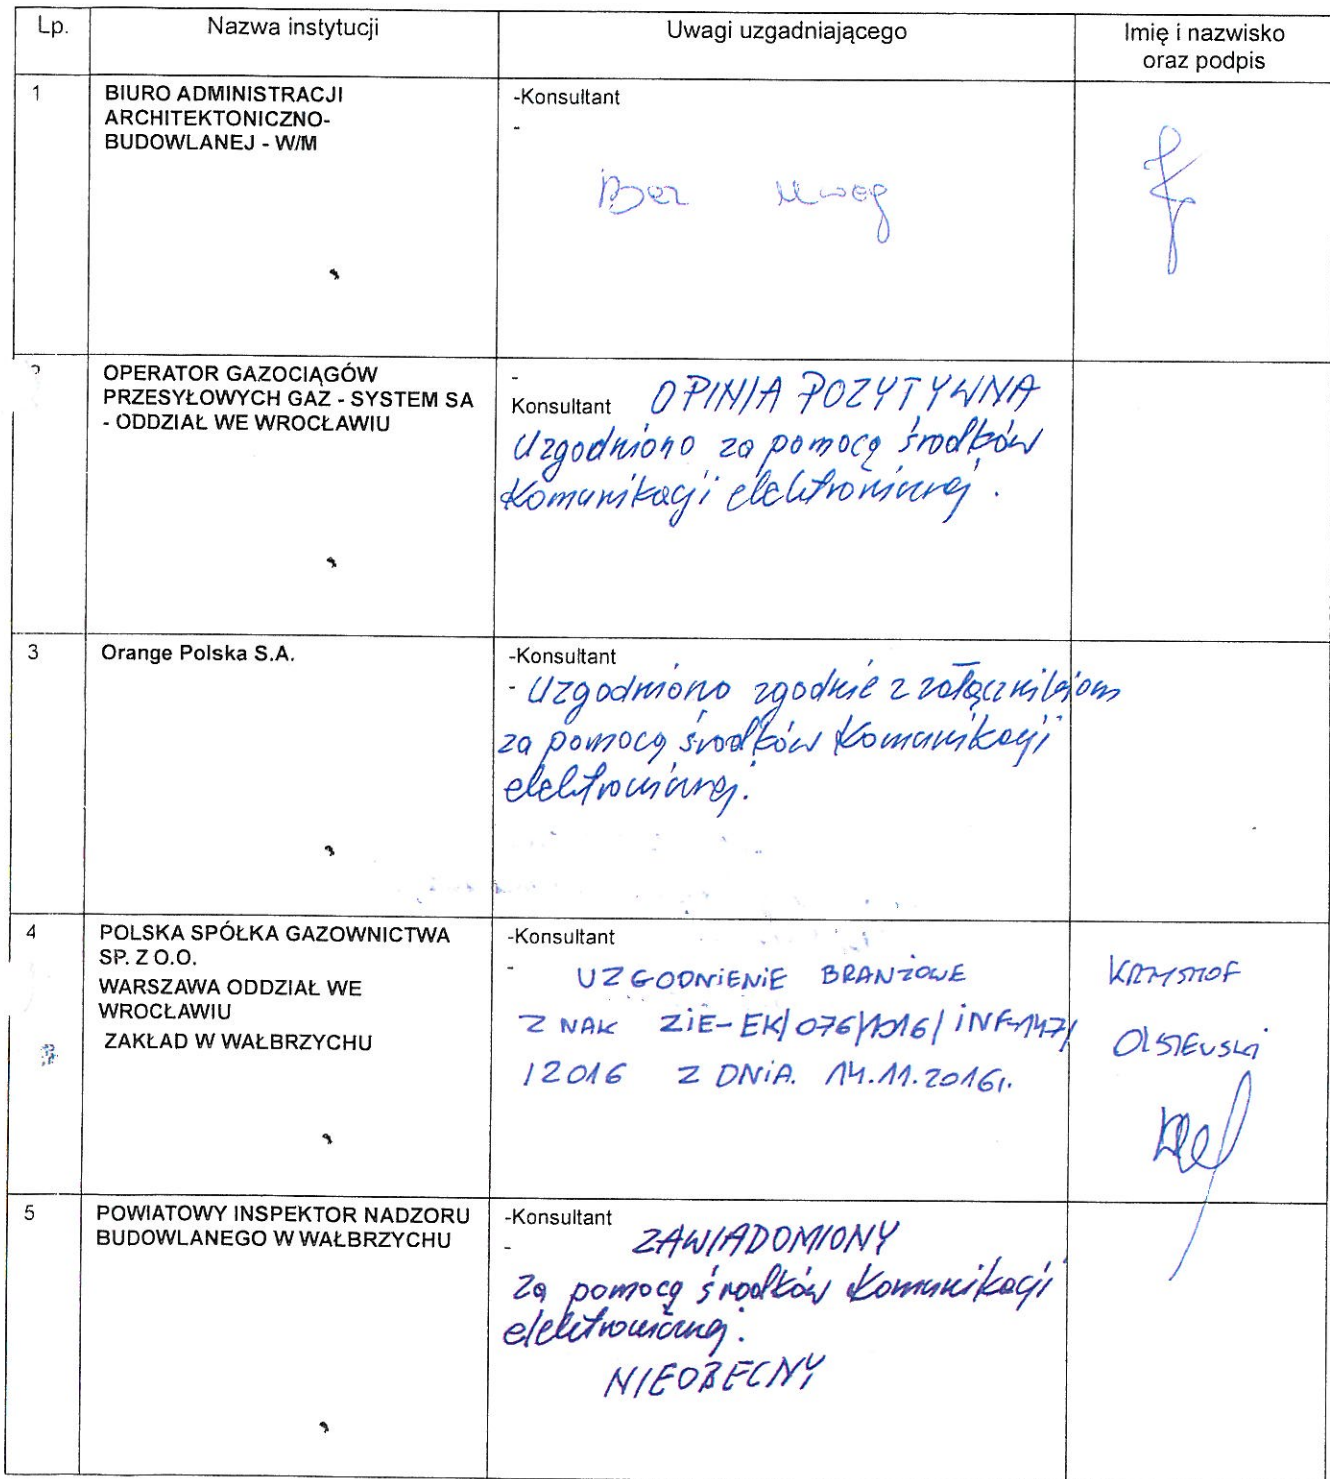 Lp.
Nazwa instytucji
Uwagi uzgadniającego
Imię i nazwisko
oraz podpis
1
BIURO ADMINISTRACJI
ARCHITEKTONICZNO-
BUDOWLANEJ - W/M
-Konsultant
-
Bez uwag
2
OPERATOR GAZOCIĄGÓW
PRZESYŁOWYCH GAZ - SYSTEM SA
- ODDZIAŁ WE WROCŁAWIU
-
Konsultant OPINIA POZYTYWNA
Uzgodniono za pomocą środków
Komunikacji elektronicznej.
3
Orange Polska S.A.
-Konsultant
- Uzgodniono zgodnie z załącznikiem
za pomocą środków Komunikacji
elektronicznej.
4
POLSKA SPÓŁKA GAZOWNICTWA
SP. Z O.O.
WARSZAWA ODDZIAŁ WE
WROCŁAWIU
ZAKŁAD W WAŁBRZYCHU
-Konsultant
- UZGODNIENIE BRANŻOWE
ZNAK ZIE-EK/076/1016/INF-147/
/2016 Z DNIA. 14.11.2016r.
KRZYSZTOF
OLSZEWSKI
5
POWIATOWY INSPEKTOR NADZORU
BUDOWLANEGO W WAŁBRZYCHU
-Konsultant
- ZAWIADOMIONY
Za pomocą środków Komunikacji
elektronicznej.
NIEOBECNY